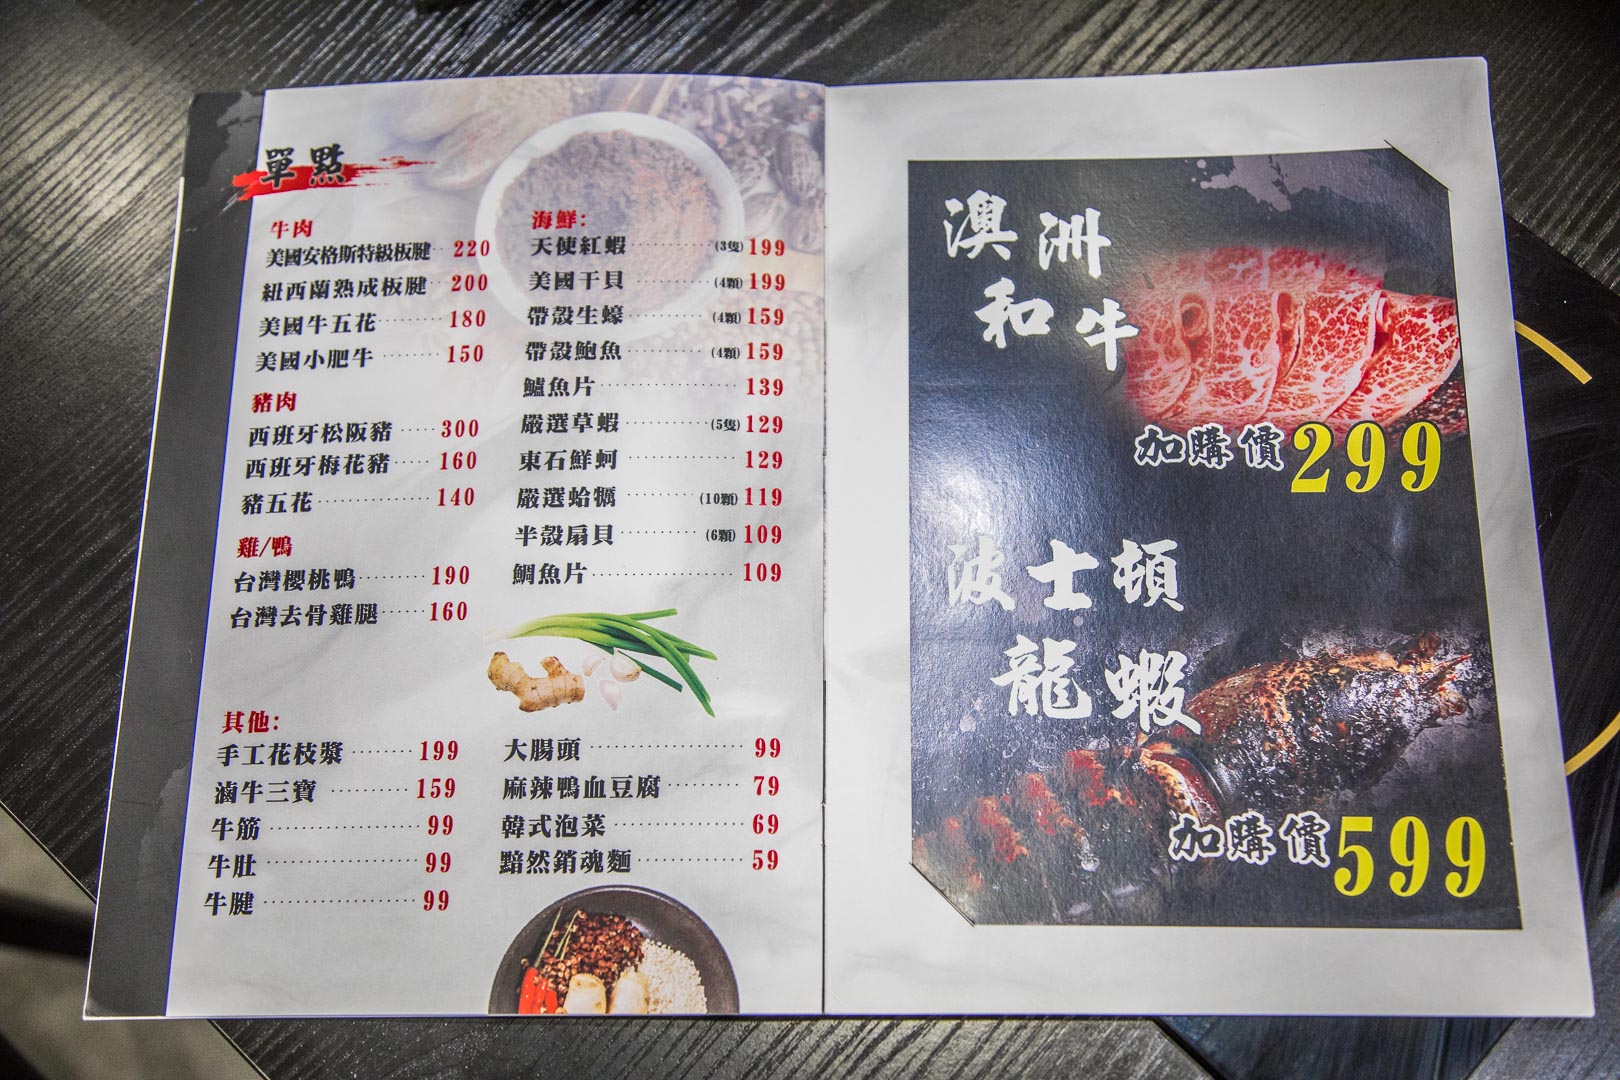 單點
牛肉
美國安格斯特級板腱 220
紐西蘭熟成板腱 200
美國牛五花 180
美國小肥牛 150
豬肉
西班牙松阪豬 300
西班牙梅花豬 160
豬五花 140
雞/鴨
台灣櫻桃鴨 190
台灣去骨雞腿 160
海鮮:
天使紅蝦 (3隻) 199
美國干貝 (4顆) 199
帶殼生蠔 (4顆) 159
帶殼鮑魚 (4顆) 159
鱸魚片 139
嚴選草蝦 (5隻) 129
東石鮮蚵 129
嚴選蛤蠣 (10顆) 119
半殼扇貝 (6顆) 109
鯛魚片 109
其他:
手工花枝漿 199
滷牛三寶 159
牛筋 99
牛肚 99
牛腱 99
大腸頭 99
麻辣鴨血豆腐 79
韓式泡菜 69
黯然銷魂麵 59
澳洲
和牛
加購價299
波士頓
龍蝦
加購價599